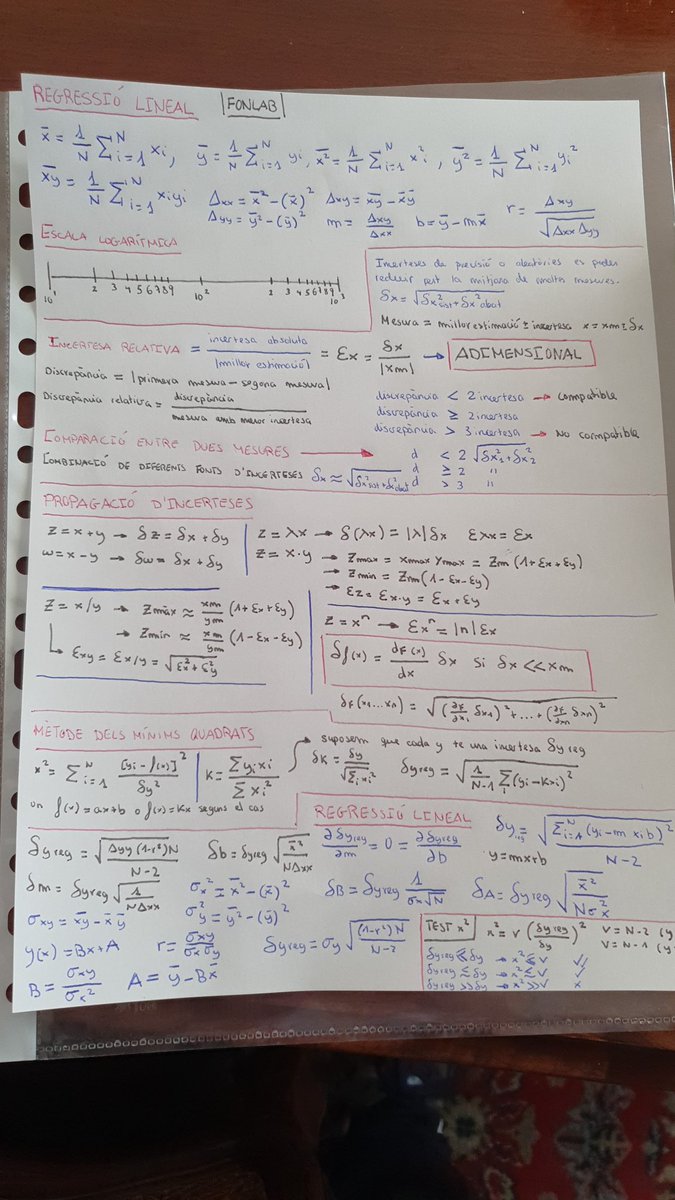 REGRESSIÓ LINEAL |FONLAB|
x̄ = 1/N ∑ᵢ₌₁ᴺ xᵢ, ȳ = 1/N ∑ᵢ₌₁ᴺ yᵢ, x̄² = 1/N ∑ᵢ₌₁ᴺ xᵢ², ȳ² = 1/N ∑ᵢ₌₁ᴺ yᵢ²
x̄y = 1/N ∑ᵢ₌₁ᴺ xᵢyᵢ Δxx = x̄² - (x̄)² Δxy = x̄y - x̄ȳ
Δyy = ȳ² - (ȳ)² m = Δxy/Δxx b = ȳ - mx̄ r = Δxy/√(Δxx Δyy)
ESCALA LOGARÍTMICA
10¹ 2 3 4 5 6 7 8 9 10² 2 3 4 5 6 7 8 9 10³
Incerteses de precisió o aleatòries es poden
reduir fent la mitjana de moltes mesures.
δx = √(δx²sist + δx²aleat)
Mesura = millor estimació ± incertesa x = xm ± δx
INCERTESA RELATIVA = incertesa absoluta/|millor estimació| = εx = δx/|xm| → ADIMENSIONAL
Discrepància = |primera mesura - segona mesura|
Discrepància relativa = discrepància/mesura amb menor incertesa
discrepància < 2 incertesa → compatible
discrepància ≥ 2 incertesa
discrepància > 3 incertesa → No compatible
COMPARACIÓ ENTRE DUES MESURES → d < 2 √(δx²₁ + δx²₂)
d ≥ 2 "
d > 3 "
COMBINACIÓ DE DIFERENTS FONTS D'INCERTESES δx ≈ √(δx²sist + δx²aleat)
PROPAGACIÓ D'INCERTESES
z = x + y → δz = δx + δy
w = x - y → δw = δx + δy
z = λx → δ(λx) = |λ|δx ελx = εx
z = x·y → Zmax = xmax ymax = Zm (1 + εx + εy)
→ Zmin = Zm (1 - εx - εy)
→ εz = εx·y = εx + εy
z = x/y → Zmàx ≈ xm/ym (1 + εx + εy)
→ Zmín ≈ xm/ym (1 - εx - εy)
εxy = εx/y = √(εx² + εy²)
z = xⁿ → εxⁿ = |n| εx
δf(x) = df(x)/dx δx si δx << xm
δf(x₁...xn) = √((∂f/∂x₁ δx₁)² + ... + (∂f/∂xn δxn)²)
MÈTODE DELS MÍNIMS QUADRATS
x² = ∑ᵢ₌₁ᴺ [yi - f(xi)]²/δy² K = ∑yᵢxᵢ/∑xᵢ²
suposem que cada y te una incertesa δyreg
δK = δy/√(∑ᵢxᵢ²) δyreg = √(1/(N-1) ∑ᵢ(yi - kxi)²)
on f(x) = ax + b o f(x) = kx segons el cas
REGRESSIÓ LINEAL
δyreg = √(Δyy (1-r²)N/(N-2)) δb = δyreg √(x̄²/(NΔxx))
∂δyreg/∂m = 0 = ∂δyreg/∂b δyreg = √(∑ᵢ₌₁ᴺ(yi - m xi b)²/(N-2))
y = mx + b
δm = δyreg √(1/(NΔxx)) σx² = x̄² - (x̄)² δB = δyreg 1/(σx√N) δA = δyreg √(x̄²/(Nσx²))
σxy = x̄y - x̄ȳ σy² = ȳ² - (ȳ)²
y(x) = Bx + A r = σxy/(σxσy) δyreg = σy √((1-r²)N/(N-2))
B = σxy/σx² A = ȳ - Bx̄
TEST x² x² = ν (δyreg/δy)² ν = N-2 (y
ν = N-1 (y
δyreg ≲ δy → x² ≲ ν ✓✓
δyreg ≲ δy → x² ≲ ν ✓
δyreg >> δy → x² >> ν x